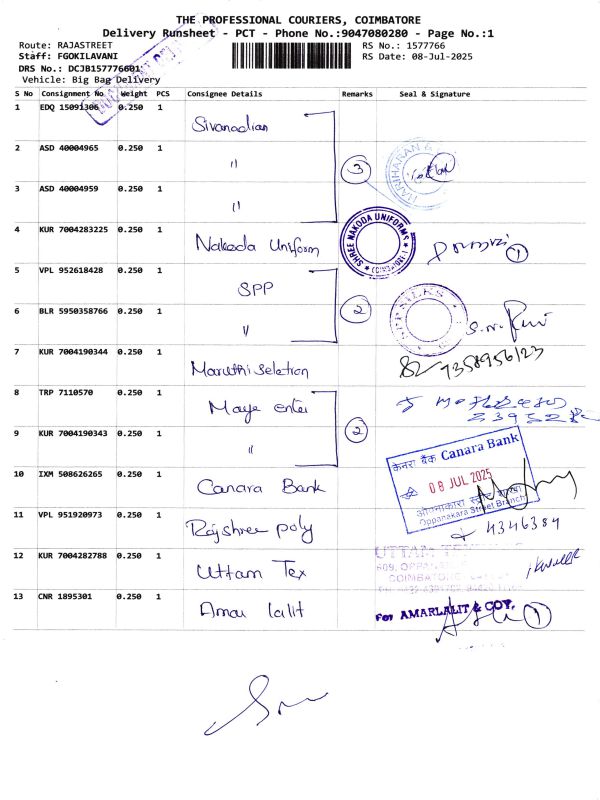 THE PROFESSIONAL COURIERS, COIMBATORE
Delivery Runsheet - PCT - Phone No.:9047080280 - Page No.:1
Route: RAJASTREET
RS No.: 1577766
Staff: FGOKILAVANI
RS Date: 08-Jul-2025
DRS No.: DCJB157776601
Vehicle: Big Bag Delivery
S No Consignment No Weight PCS Consignee Details Remarks Seal & Signature
1 EDQ 15091306 0.250 1 Sivanadian
2 ASD 40004965 0.250 1 "
3 ASD 40004959 0.250 1 "
3
HARIHARAN &
4 KUR 7004283225 0.250 1 Nakoda Uniform
SHREE NAKODA UNIFORMS
1
5 VPL 952618428 0.250 1 SPP
6 BLR 5950358766 0.250 1 "
2
SPP SILKS
7 KUR 7004190344 0.250 1 Maruthi Seletion
7358956123
8 TRP 7110570 0.250 1 Maya enter
9 KUR 7004190343 0.250 1 "
2
10 IXM 508626265 0.250 1 Canara Bank
केनरा बैंक Canara Bank
08 JUL 2025
Oppanakara Street Branch
11 VPL 951920973 0.250 1 Rajshree poly
4346384
12 KUR 7004282788 0.250 1 Uttam Tex
UTTAM
609, OPPAN
COIMBATORE
13 CNR 1895301 0.250 1 Amar lalit
For AMARLALIT & COY.
1